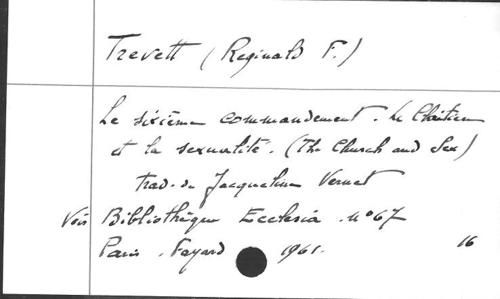 Trevett (Reginald F.)
Le sixième commandement. Le Chrétien
et la sexualité. (The Church and Sex)
trad. de Jacqueline Vernet
Voir Bibliothèque Ecclesia. n° 67
Paris. Fayard 1961. 16